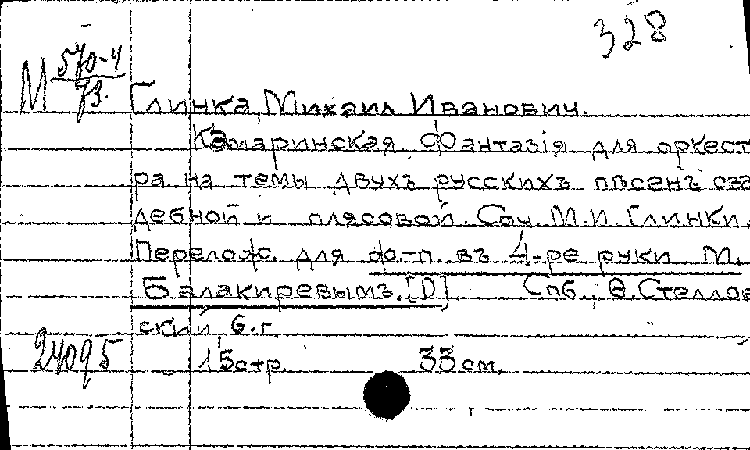 328
М 570-4
73.
Глинка, Михаил Иванович.
Камаринская. Фантазія для оркест
ра на темы двухъ русскихъ пѣсенъ сва
дебной и плясовой. Соч. М.И. Глинки.
Перелож. для фо.-п. въ 4-ре руки М.
Балакиревымъ. [D] Спб., Ѳ. Стеллов
ский б.г.
24095 15 стр. 33 см.